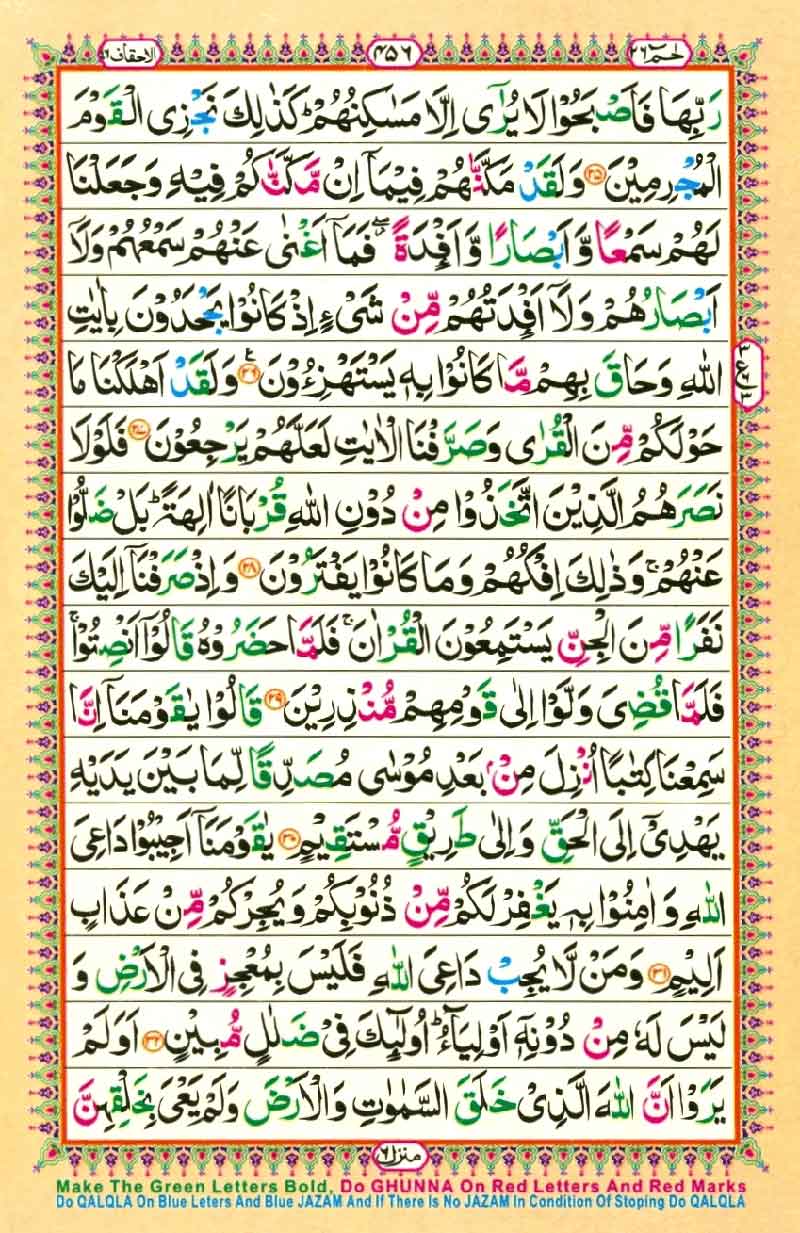 الاحقاف ٤٦ ٤٥٦ حٰمٓ ٢٦
رَبِّهَا فَاَصْبَحُوْا لَا يُرٰٓى اِلَّا مَسٰكِنُهُمْ ؕ كَذٰلِكَ نَجْزِى الْقَوْمَ
الْمُجْرِمِيْنَ ﴿۲۵﴾ وَلَقَدْ مَكَّنّٰهُمْ فِيْمَاۤ اِنْ مَّكَّنّٰكُمْ فِيْهِ وَجَعَلْنَا
لَهُمْ سَمْعًا وَّاَبْصَارًا وَّاَفْـِٕدَةً ۖ فَمَاۤ اَغْنٰى عَنْهُمْ سَمْعُهُمْ وَلَاۤ
اَبْصَارُهُمْ وَلَاۤ اَفْـِٕدَتُهُمْ مِّنْ شَىْءٍ اِذْ كَانُوْا يَجْحَدُوْنَ بِاٰيٰتِ
اللّٰهِ وَحَاقَ بِهِمْ مَّا كَانُوْا بِهٖ يَسْتَهْزِءُوْنَ ﴿۲۶﴾ وَلَقَدْ اَهْلَكْنَا مَا
حَوْلَكُمْ مِّنَ الْقُرٰى وَصَرَّفْنَا الْاٰيٰتِ لَعَلَّهُمْ يَرْجِعُوْنَ ﴿۲۷﴾ فَلَوْلَا
نَصَرَهُمُ الَّذِيْنَ اتَّخَذُوْا مِنْ دُوْنِ اللّٰهِ قُرْبَانًا اٰلِهَةً ؕ بَلْ ضَلُّوْا
عَنْهُمْ ۚ وَذٰلِكَ اِفْكُهُمْ وَمَا كَانُوْا يَفْتَرُوْنَ ﴿۲۸﴾ وَاِذْ صَرَفْنَاۤ اِلَيْكَ
نَفَرًا مِّنَ الْجِنِّ يَسْتَمِعُوْنَ الْقُرْاٰنَ ۚ فَلَمَّا حَضَرُوْهُ قَالُوْۤا اَنْصِتُوْا ۚ
فَلَمَّا قُضِىَ وَلَّوْا اِلٰى قَوْمِهِمْ مُّنْذِرِيْنَ ﴿۲۹﴾ قَالُوْا يٰقَوْمَنَاۤ اِنَّا
سَمِعْنَا كِتٰبًا اُنْزِلَ مِنْۢ بَعْدِ مُوْسٰى مُصَدِّقًا لِّمَا بَيْنَ يَدَيْهِ
يَهْدِىْۤ اِلَى الْحَقِّ وَاِلٰى طَرِيْقٍ مُّسْتَقِيْمٍ ﴿۳۰﴾ يٰقَوْمَنَاۤ اَجِيْبُوْا دَاعِىَ
اللّٰهِ وَاٰمِنُوْا بِهٖ يَغْفِرْ لَكُمْ مِّنْ ذُنُوْبِكُمْ وَيُجِرْكُمْ مِّنْ عَذَابٍ
اَلِيْمٍ ﴿۳۱﴾ وَمَنْ لَّا يُجِبْ دَاعِىَ اللّٰهِ فَلَيْسَ بِمُعْجِزٍ فِى الْاَرْضِ وَ
لَيْسَ لَهٗ مِنْ دُوْنِهٖۤ اَوْلِيَآءُ ؕ اُولٰٓئِكَ فِىْ ضَلٰلٍ مُّبِيْنٍ ﴿۳۲﴾ اَوَلَمْ
يَرَوْا اَنَّ اللّٰهَ الَّذِىْ خَلَقَ السَّمٰوٰتِ وَالْاَرْضَ وَلَمْ يَعْىَ بِخَلْقِهِنَّ
منزل ٦
Make The Green Letters Bold, Do GHUNNA On Red Letters And Red Marks
Do QALQLA On Blue Leters And Blue JAZAM And If There Is No JAZAM In Condition Of Stoping Do QALQLA